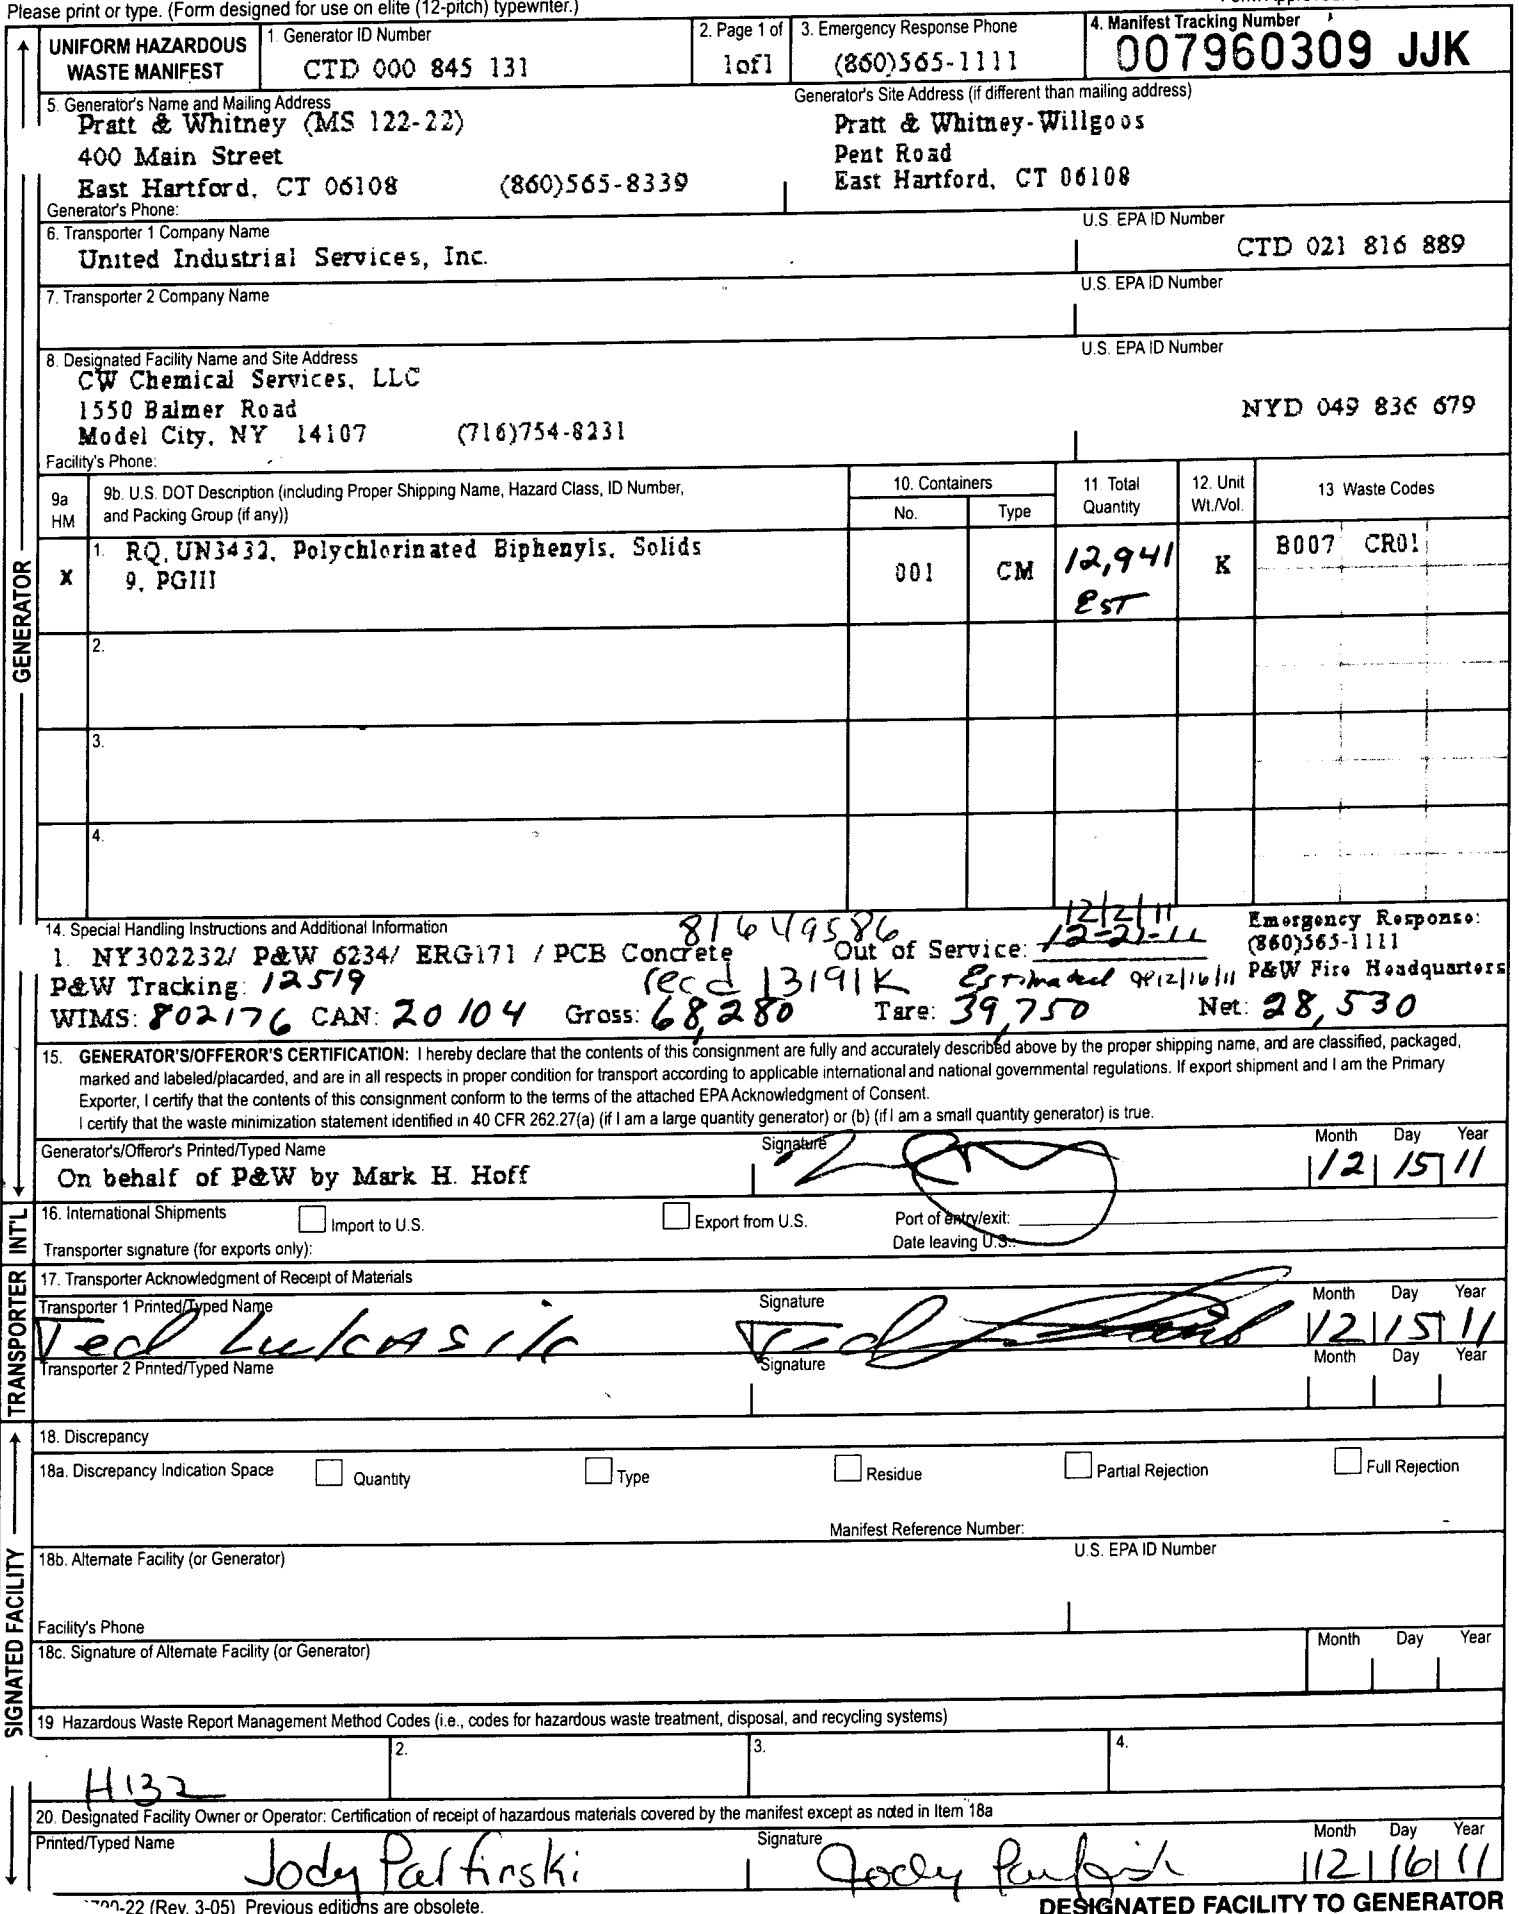 Please print or type. (Form designed for use on elite (12-pitch) typewriter.)
UNIFORM HAZARDOUS WASTE MANIFEST
1. Generator ID Number
CTD 000 845 131
2. Page 1 of
1of1
3. Emergency Response Phone
(860)565-1111
4. Manifest Tracking Number
007960309 JJK
5. Generator's Name and Mailing Address
Pratt & Whitney (MS 122-22)
400 Main Street
East Hartford, CT 06108 (860)565-8339
Generator's Phone:
Generator's Site Address (if different than mailing address)
Pratt & Whitney-Willgoos
Pent Road
East Hartford, CT 06108
6. Transporter 1 Company Name
United Industrial Services, Inc.
U.S. EPA ID Number
CTD 021 816 889
7. Transporter 2 Company Name
U.S. EPA ID Number
8. Designated Facility Name and Site Address
CW Chemical Services, LLC
1550 Balmer Road
Model City, NY 14107 (716)754-8231
Facility's Phone:
U.S. EPA ID Number
NYD 049 836 679
9a HM
9b. U.S. DOT Description (including Proper Shipping Name, Hazard Class, ID Number,
and Packing Group (if any))
10. Containers
No.
Type
11. Total Quantity
12. Unit Wt./Vol.
13 Waste Codes
X
1. RQ, UN3432, Polychlorinated Biphenyls, Solids
9, PGIII
001
CM
12,941
EST
K
B007 CR01
2.
3.
4.
GENERATOR
14. Special Handling Instructions and Additional Information
81649586
12/2/11
Emergency Response:
1. NY302232/ P&W 6234/ ERG171 / PCB Concrete Out of Service: 12-21-11 (860)565-1111
P&W Tracking: 12519 recd 13191K Estimated 12/16/11 P&W Fire Headquarters
WIMS: 802176 CAN: 20104 Gross: 68,280 Tare: 39,750 Net: 28,530
15. GENERATOR'S/OFFEROR'S CERTIFICATION: I hereby declare that the contents of this consignment are fully and accurately described above by the proper shipping name, and are classified, packaged,
marked and labeled/placarded, and are in all respects in proper condition for transport according to applicable international and national governmental regulations. If export shipment and I am the Primary
Exporter, I certify that the contents of this consignment conform to the terms of the attached EPA Acknowledgment of Consent.
I certify that the waste minimization statement identified in 40 CFR 262.27(a) (if I am a large quantity generator) or (b) (if I am a small quantity generator) is true.
Generator's/Offeror's Printed/Typed Name
Signature
Month Day Year
On behalf of P&W by Mark H. Hoff
12 15 11
INT'L
16. International Shipments
Import to U.S.
Export from U.S.
Port of entry/exit:
Transporter signature (for exports only):
Date leaving U.S.:
TRANSPORTER
17. Transporter Acknowledgment of Receipt of Materials
Transporter 1 Printed/Typed Name
Signature
Month Day Year
Ted Lukasik
Ted
12 15 11
Transporter 2 Printed/Typed Name
Signature
Month Day Year
18. Discrepancy
18a. Discrepancy Indication Space
Quantity
Type
Residue
Partial Rejection
Full Rejection
Manifest Reference Number:
18b. Alternate Facility (or Generator)
U.S. EPA ID Number
Facility's Phone
18c. Signature of Alternate Facility (or Generator)
Month Day Year
SIGNATED FACILITY
19 Hazardous Waste Report Management Method Codes (i.e., codes for hazardous waste treatment, disposal, and recycling systems)
H132
2.
3.
4.
20. Designated Facility Owner or Operator: Certification of receipt of hazardous materials covered by the manifest except as noted in Item 18a
Printed/Typed Name
Signature
Month Day Year
Jody Parfinski
Jody Parfinski
12 16 11
-22 (Rev. 3-05) Previous editions are obsolete.
DESIGNATED FACILITY TO GENERATOR